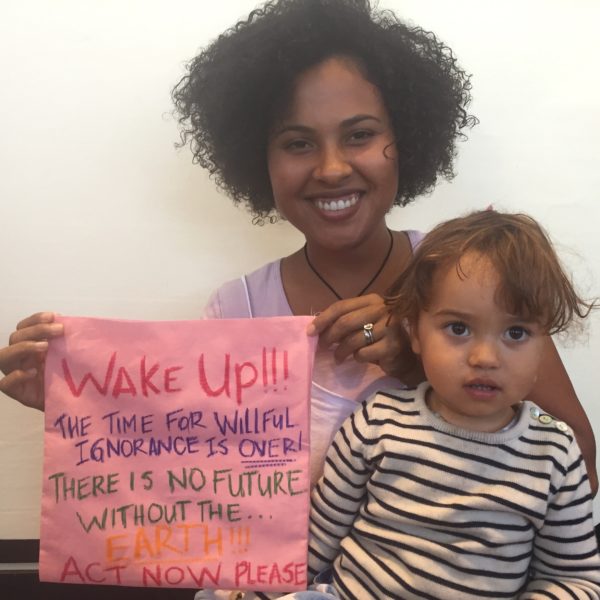 WAKE UP!!!
THE TIME FOR WILLFUL
IGNORANCE IS OVER!
THERE IS NO FUTURE
WITHOUT THE...
EARTH!!!
ACT NOW PLEASE